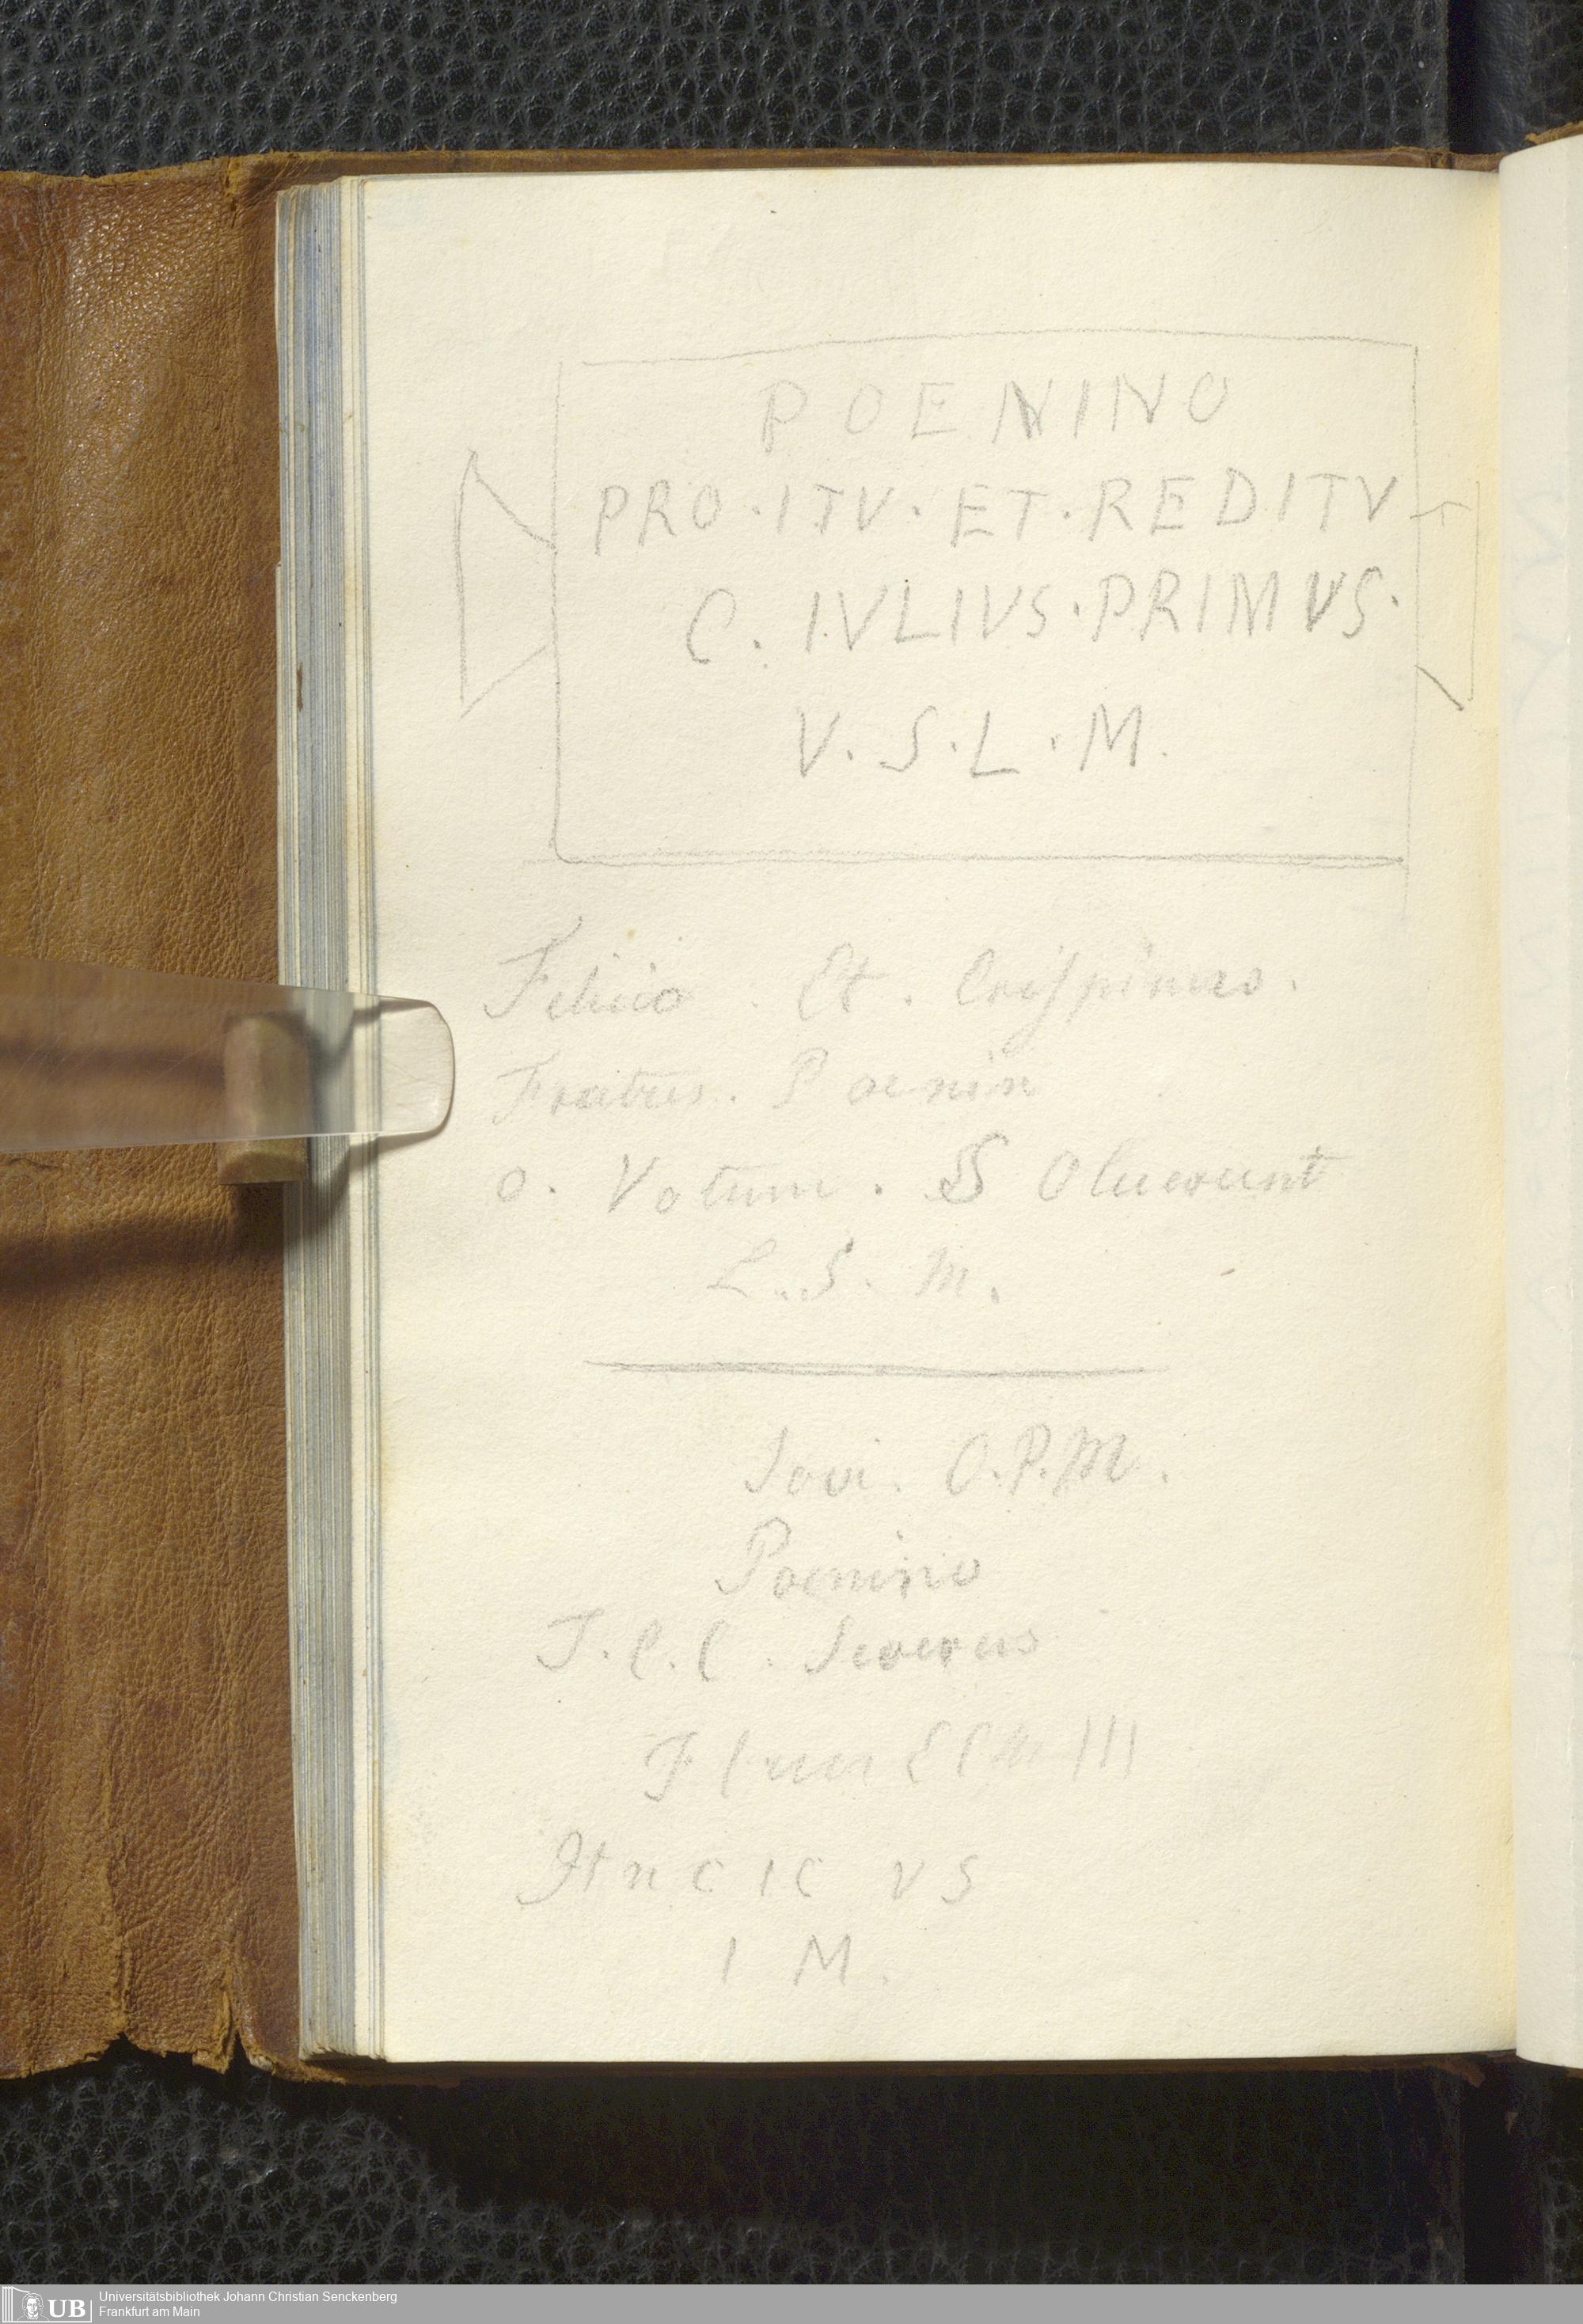 POENINO
PRO · ITV · ET · REDITV
C. IVLIVS · PRIMVS ·
V. S. L. M.
Felicio . Et . Crispinus .
Fratres . Poenin
o . Votum . S Oluerunt
L. S. M.
Jovi . O. P. M.
Poenino
T. C. C . Severus
III
It n C I C V S
I M .
Universitätsbibliothek Johann Christian Senckenberg
Frankfurt am Main
UB